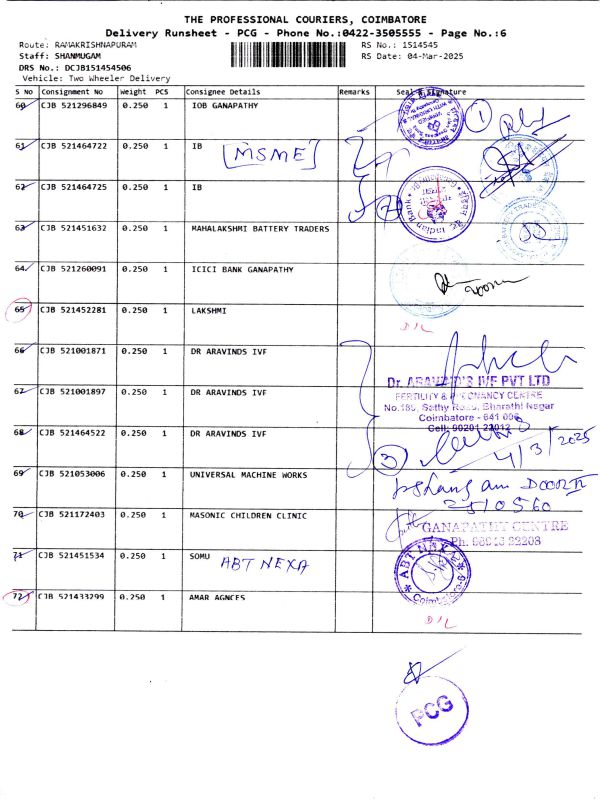 THE PROFESSIONAL COURIERS, COIMBATORE
Delivery Runsheet - PCG - Phone No.:0422-3505555 - Page No.:6
Route: RAMAKRISHNAPURAM RS No.: 1514545
Staff: SHANMUGAM RS Date: 04-Mar-2025
DRS No.: DCJB151454506
Vehicle: Two Wheeler Delivery
S No Consignment No Weight PCS Consignee Details Remarks Seal & Signature
60 CJB 521296849 0.250 1 IOB GANAPATHY 1
61 CJB 521464722 0.250 1 IB [MSME]
62 CJB 521464725 0.250 1 IB 2
Indian Bank
63 CJB 521451632 0.250 1 MAHALAKSHMI BATTERY TRADERS
64 CJB 521260091 0.250 1 ICICI BANK GANAPATHY
65 CJB 521452281 0.250 1 LAKSHMI D/L
66 CJB 521001871 0.250 1 DR ARAVINDS IVF
Dr. ARAVIND'S IVF PVT LTD
FERTILITY & PREGNANCY CENTRE
67 CJB 521001897 0.250 1 DR ARAVINDS IVF
Sathy Road, Bharathi Nagar
Coimbatore - 641 006
68 CJB 521464522 0.250 1 DR ARAVINDS IVF
3 4/3/2025
69 CJB 521053006 0.250 1 UNIVERSAL MACHINE WORKS
70 CJB 521172403 0.250 1 MASONIC CHILDREN CLINIC
GANAPATHY CENTRE
71 CJB 521451534 0.250 1 SOMU ABT NEXA
ABT NEXA
Coimbatore-6
72 CJB 521433299 0.250 1 AMAR AGNCES
D/L
PCG